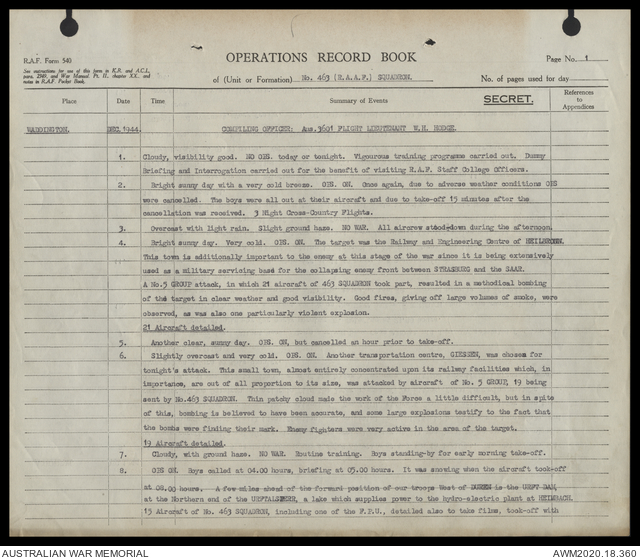 R.A.F. Form 540
See instructions for use of this form in K.R. and A.C.I.,
para. 2349, and War Manual, Pt. II., chapter XX., and
notes in R.A.F. Pocket Book.
OPERATIONS RECORD BOOK
Page No. 1
of (Unit or Formation) No. 463 (R.A.A.F.) SQUADRON.
No. of pages used for day
Place Date Time Summary of Events SECRET. References to Appendices
WADDINGTON. DEC.1944. COMPILING OFFICER: Aus.3601 FLIGHT LIEUTENANT W.H. HODGE.
1. Cloudy, visibility good. NO OPS. today or tonight. Vigourous training programme carried out. Dummy
Briefing and Interrogation carried out for the benefit of visiting R.A.F. Staff College Officers.
2. Bright sunny day with a very cold breeze. OPS. ON. Once again, due to adverse weather conditions OPS
were cancelled. The boys were all out at their aircraft and due to take-off 15 minutes after the
cancellation was received. 3 Night Cross-Country Flights.
3. Overcast with light rain. Slight ground haze. NO WAR. All aircrew stood-down during the afternoon.
4. Bright sunny day. Very cold. OPS. ON. The target was the Railway and Engineering Centre of HEILBRONN.
This town is additionally important to the enemy at this stage of the war since it is being extensively
used as a military servicing base for the collapsing enemy front between STRASBURG and the SAAR.
A No.5 GROUP attack, in which 21 aircraft of 463 SQUADRON took part, resulted in a methodical bombing
of the target in clear weather and good visibility. Good fires, giving off large volumes of smoke, were
observed, as was also one particularly violent explosion.
21 Aircraft detailed.
5. Another clear, sunny day. OPS. ON, but cancelled an hour prior to take-off.
6. Slightly overcast and very cold. OPS. ON. Another transportation centre, GIESSEN, was chosen for
tonight's attack. This small town, almost entirely concentrated upon its railway facilities which, in
importance, are out of all proportion to its size, was attacked by aircraft of No. 5 GROUP, 19 being
sent by No.463 SQUADRON. Thin patchy cloud made the work of the Force a little difficult, but in spite
of this, bombing is believed to have been accurate, and some large explosions testify to the fact that
the bombs were finding their mark. Enemy fighters were very active in the area of the target.
19 Aircraft detailed.
7. Cloudy, with ground haze. NO WAR. Routine training. Boys standing-by for early morning take-off.
8. OPS ON. Boys called at 04.00 hours, briefing at 05.00 hours. It was snowing when the aircraft took-off
at 08.00 hours. A few miles ahead of the forward position of our troops West of DUREN is the URFT DAM,
at the Northern end of the URFTALSPERR, a lake which supplies power to the hydro-electric plant at HEIMBACH.
15 Aircraft of No. 463 SQUADRON, including one of the F.P.U., detailed also to take films, took-off with
AUSTRALIAN WAR MEMORIAL
AWM2020.18.360